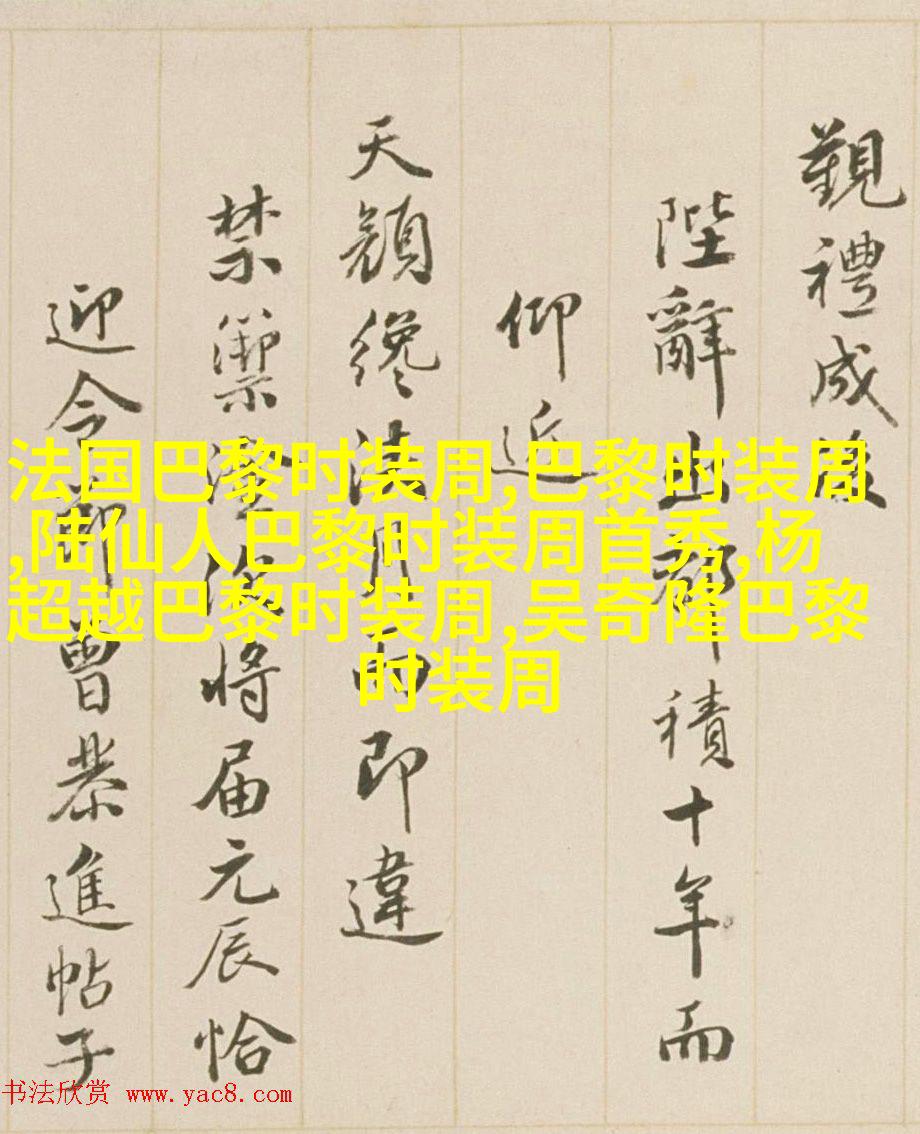 覲禮成
陛辭出都積十年而
仰近
天顏纔浹月而即違
禁籞澄懷將届元辰恰
迎令節曾恭進帖子
法国巴黎时装周,巴黎时装周
,陆仙人巴黎时装周首秀,杨
超越巴黎时装周,吴奇隆巴黎
时装周
书法欣赏 www.yac8.com